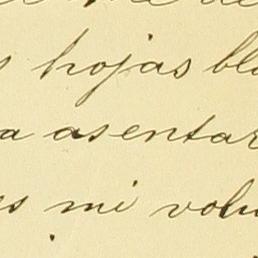 s hojas bla
a asentar
es mi volu